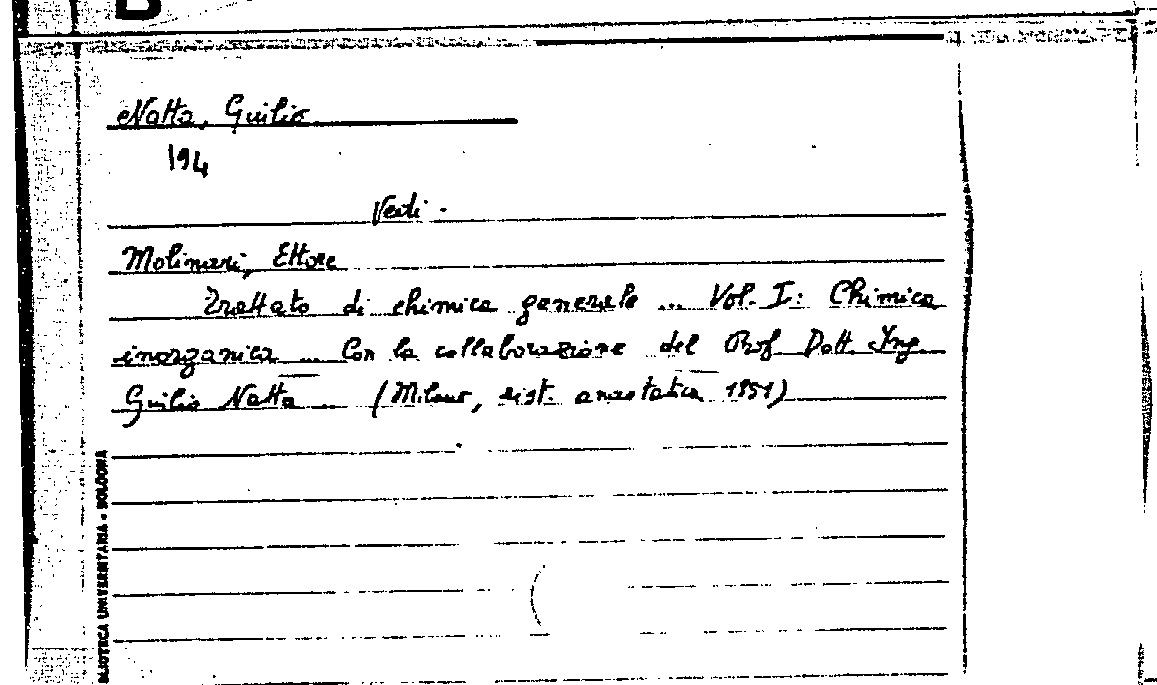 B
Natta, Giulio
194
Vedi.
Molinari, Ettore
Trattato di chimica generale ... Vol. I: Chimica
inorganica ... Con la collaborazione del Prof. Dott. Ing.
Giulio Natta ... (Milano, rist. anastatica 1951)
BLIOTECA UNIVERSITARIA - BOLOGNA